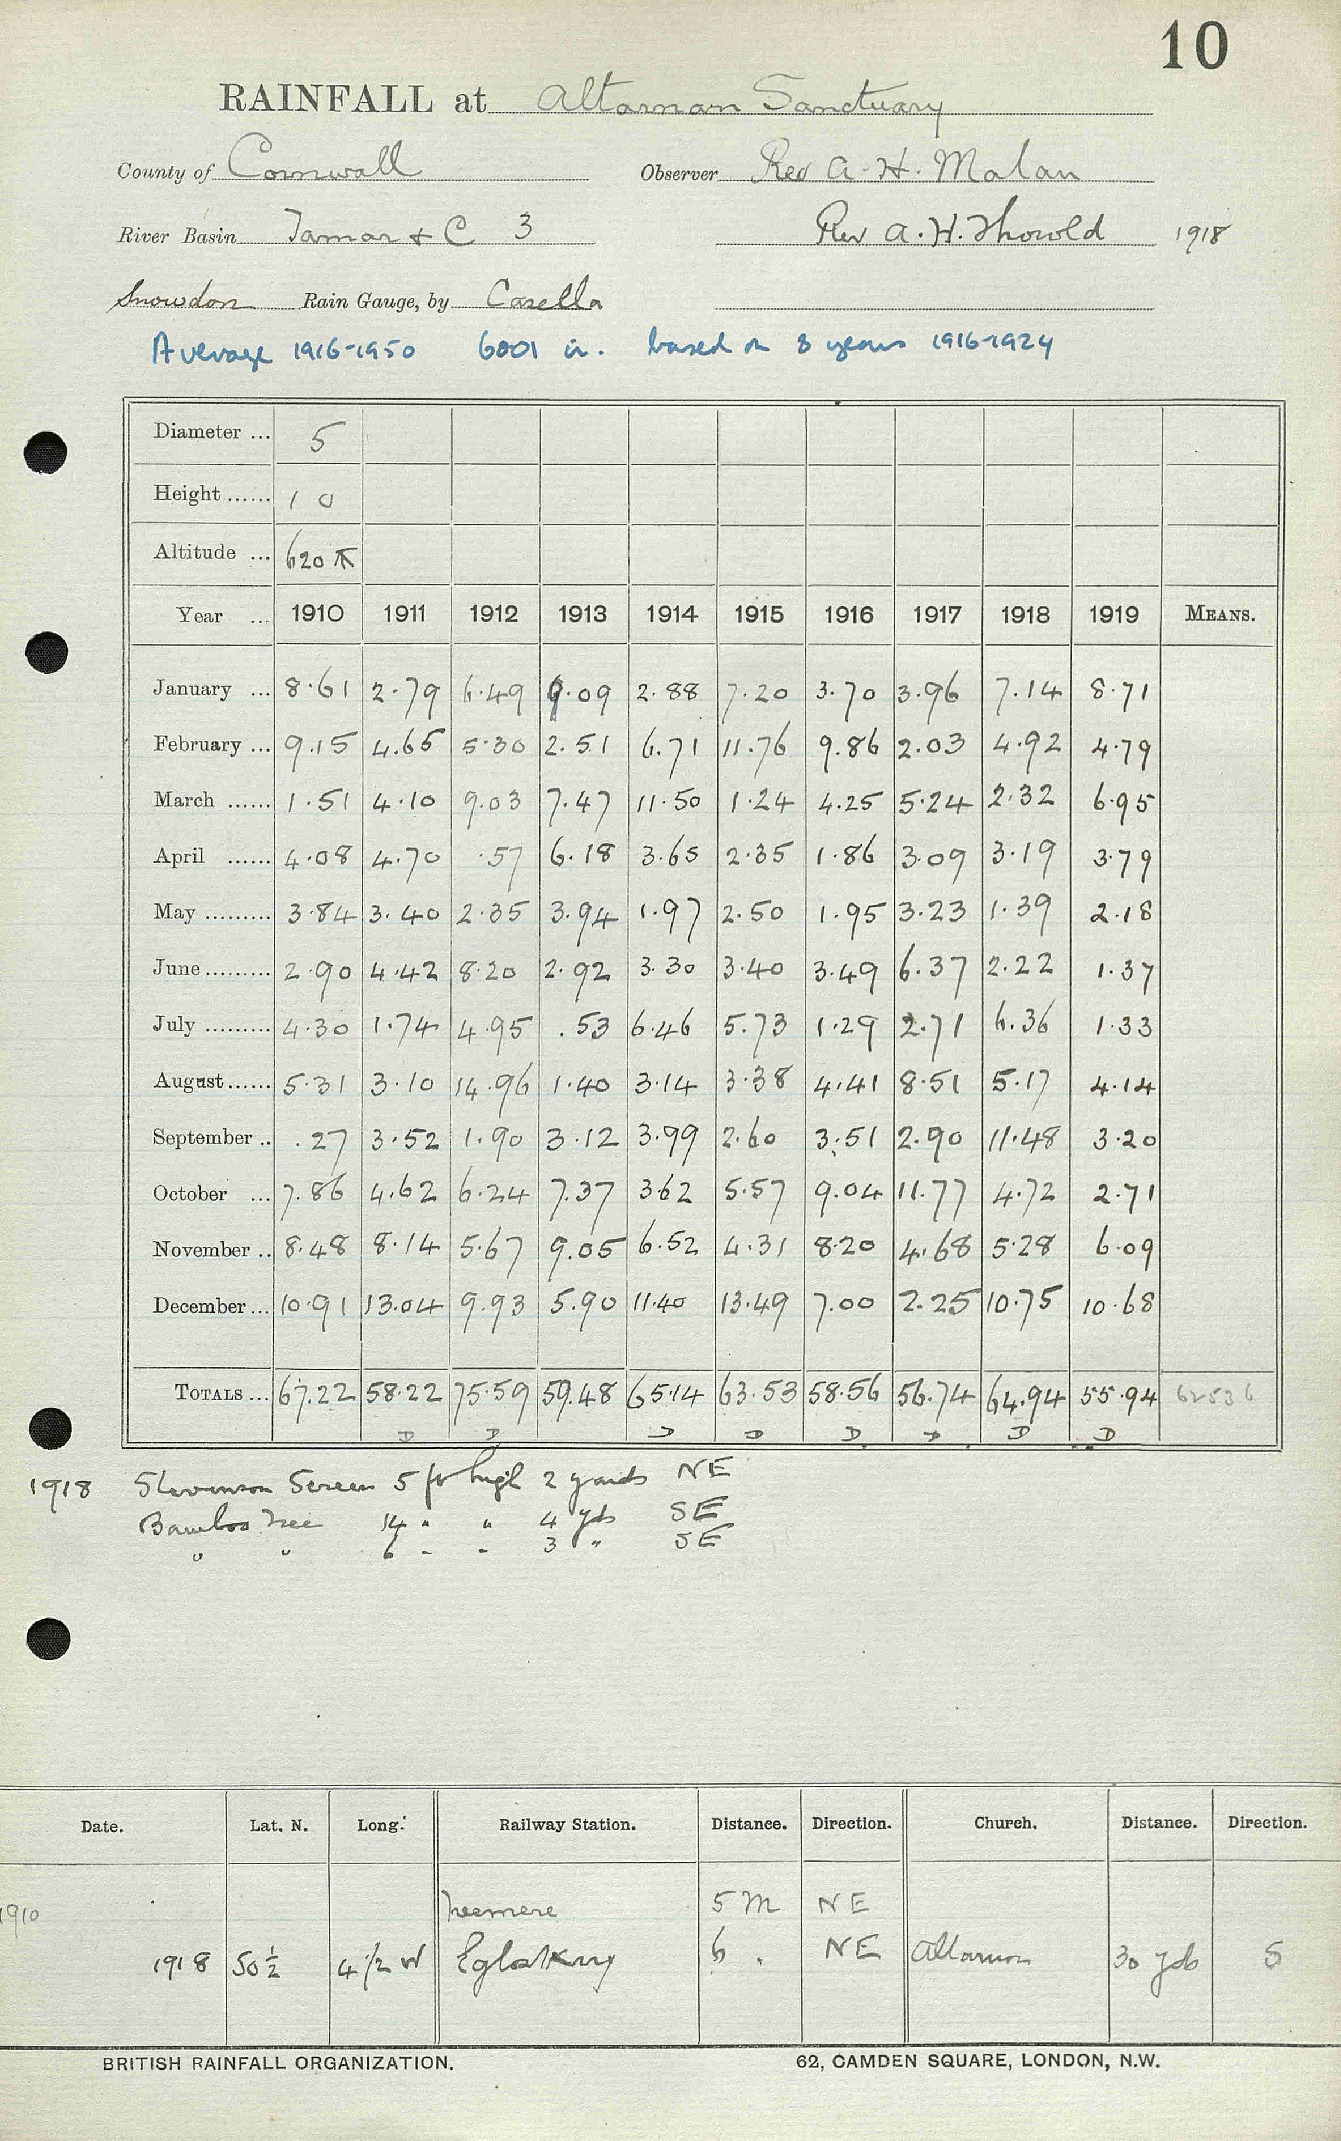 10
RAINFALL at Altarnan Sanctuary
County of Cornwall Observer Rev A. H. Malan
River Basin Tamar & C 3 Rev A. H. Thorold 1918
Snowdon Rain Gauge, by Casella
Average 1916-1950 6001 in. based on 8 years 1916-1924
Diameter ... 5
Height ...... 10
Altitude ... 620 ft
Year ... 1910 1911 1912 1913 1914 1915 1916 1917 1918 1919 MEANS.
January ... 8.61 2.79 6.49 9.09 2.88 7.20 3.70 3.96 7.14 8.71
February ... 9.15 4.65 5.30 2.51 6.71 11.76 9.86 2.03 4.92 4.79
March ...... 1.51 4.10 9.03 7.47 11.50 1.24 4.25 5.24 2.32 6.95
April ...... 4.08 4.70 .57 6.18 3.65 2.35 1.86 3.09 3.19 3.79
May ......... 3.84 3.40 2.35 3.94 1.97 2.50 1.95 3.23 1.39 2.18
June ......... 2.90 4.42 8.20 2.92 3.30 3.40 3.49 6.37 2.22 1.37
July ......... 4.30 1.74 4.95 .53 6.46 5.73 1.29 2.71 6.36 1.33
August ...... 5.31 3.10 14.96 1.40 3.14 3.38 4.41 8.51 5.17 4.14
September .. .27 3.52 1.90 3.12 3.99 2.60 3.51 2.90 11.48 3.20
October ... 7.86 4.62 6.24 7.37 3.62 5.57 9.04 11.77 4.72 2.71
November .. 8.48 8.14 5.67 9.05 6.52 4.31 8.20 4.68 5.28 6.09
December ... 10.91 13.04 9.93 5.90 11.40 13.49 7.00 2.25 10.75 10.68
TOTALS ... 67.22 58.22 75.59 59.48 65.14 63.53 58.56 56.74 64.94 55.94 62536
D D D D D D D D
1918 Stevenson Screen 5 ft high 2 yards NE
Bamboo Tree 14 " " 4 yds SE
" " 6 " " 3 " SE
Date. Lat. N. Long. Railway Station. Distance. Direction. Church. Distance. Direction.
1910 Tremere 5 M NE
1918 50 ½ 4 1/2 W Egloskerry 6 " NE Altarnon 30 yds S
BRITISH RAINFALL ORGANIZATION. 62, CAMDEN SQUARE, LONDON, N.W.